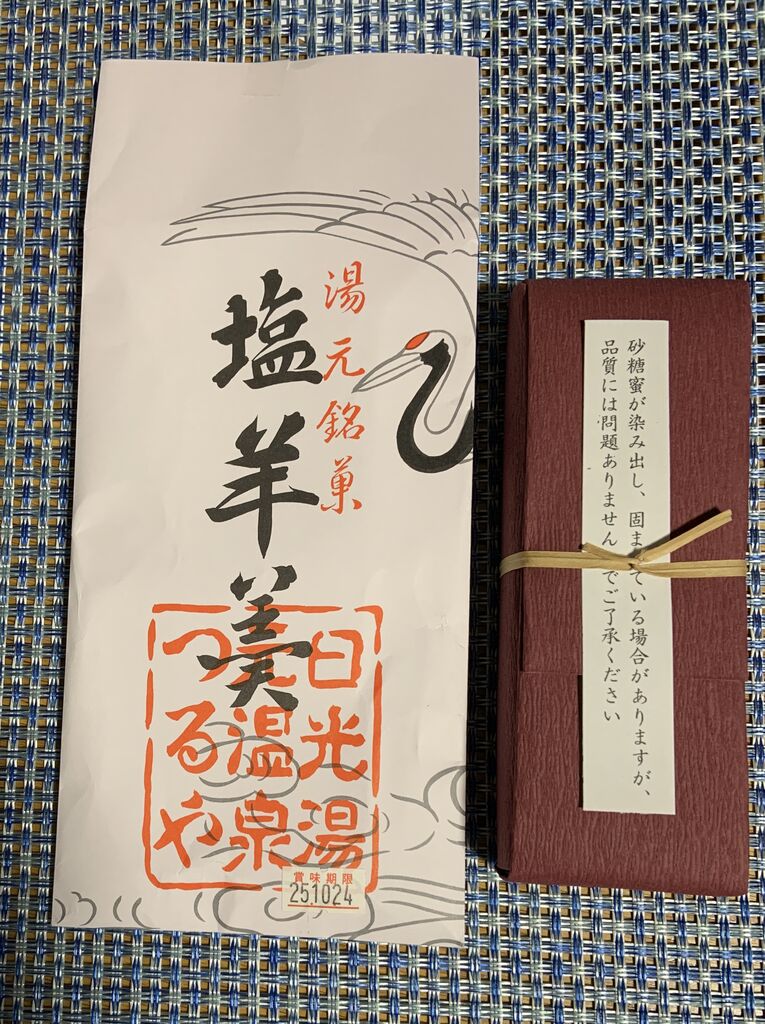 湯元銘菓
塩羊羹
日光湯
元温泉
つるや
賞味期限
25.1024
砂糖蜜が染み出し、固まっている場合がありますが、
品質には問題ありませんのでご了承ください